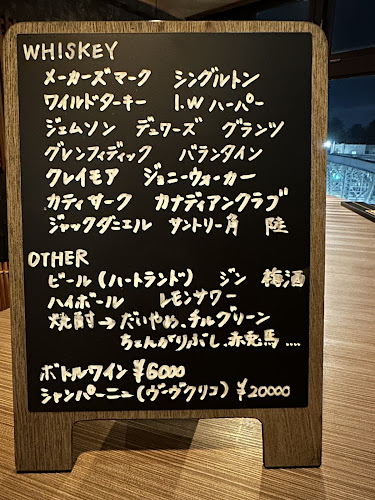 WHISKEY
メーカーズマーク シングルトン
ワイルドターキー I.W ハーパー
ジェムソン デュワーズ グランツ
グレンフィディック バランタイン
クレイモア ジョニーウォーカー
カティサーク カナディアンクラブ
ジャックダニエル サントリー角 陸
OTHER
ビール (ハートランド) ジン 梅酒
ハイボール レモンサワー
焼酎→だいやめ、チルグリーン
ちょんがりぶし、赤兎馬 ....
ボトルワイン ¥6000
シャンパーニュ (ヴーヴクリコ) ¥20000